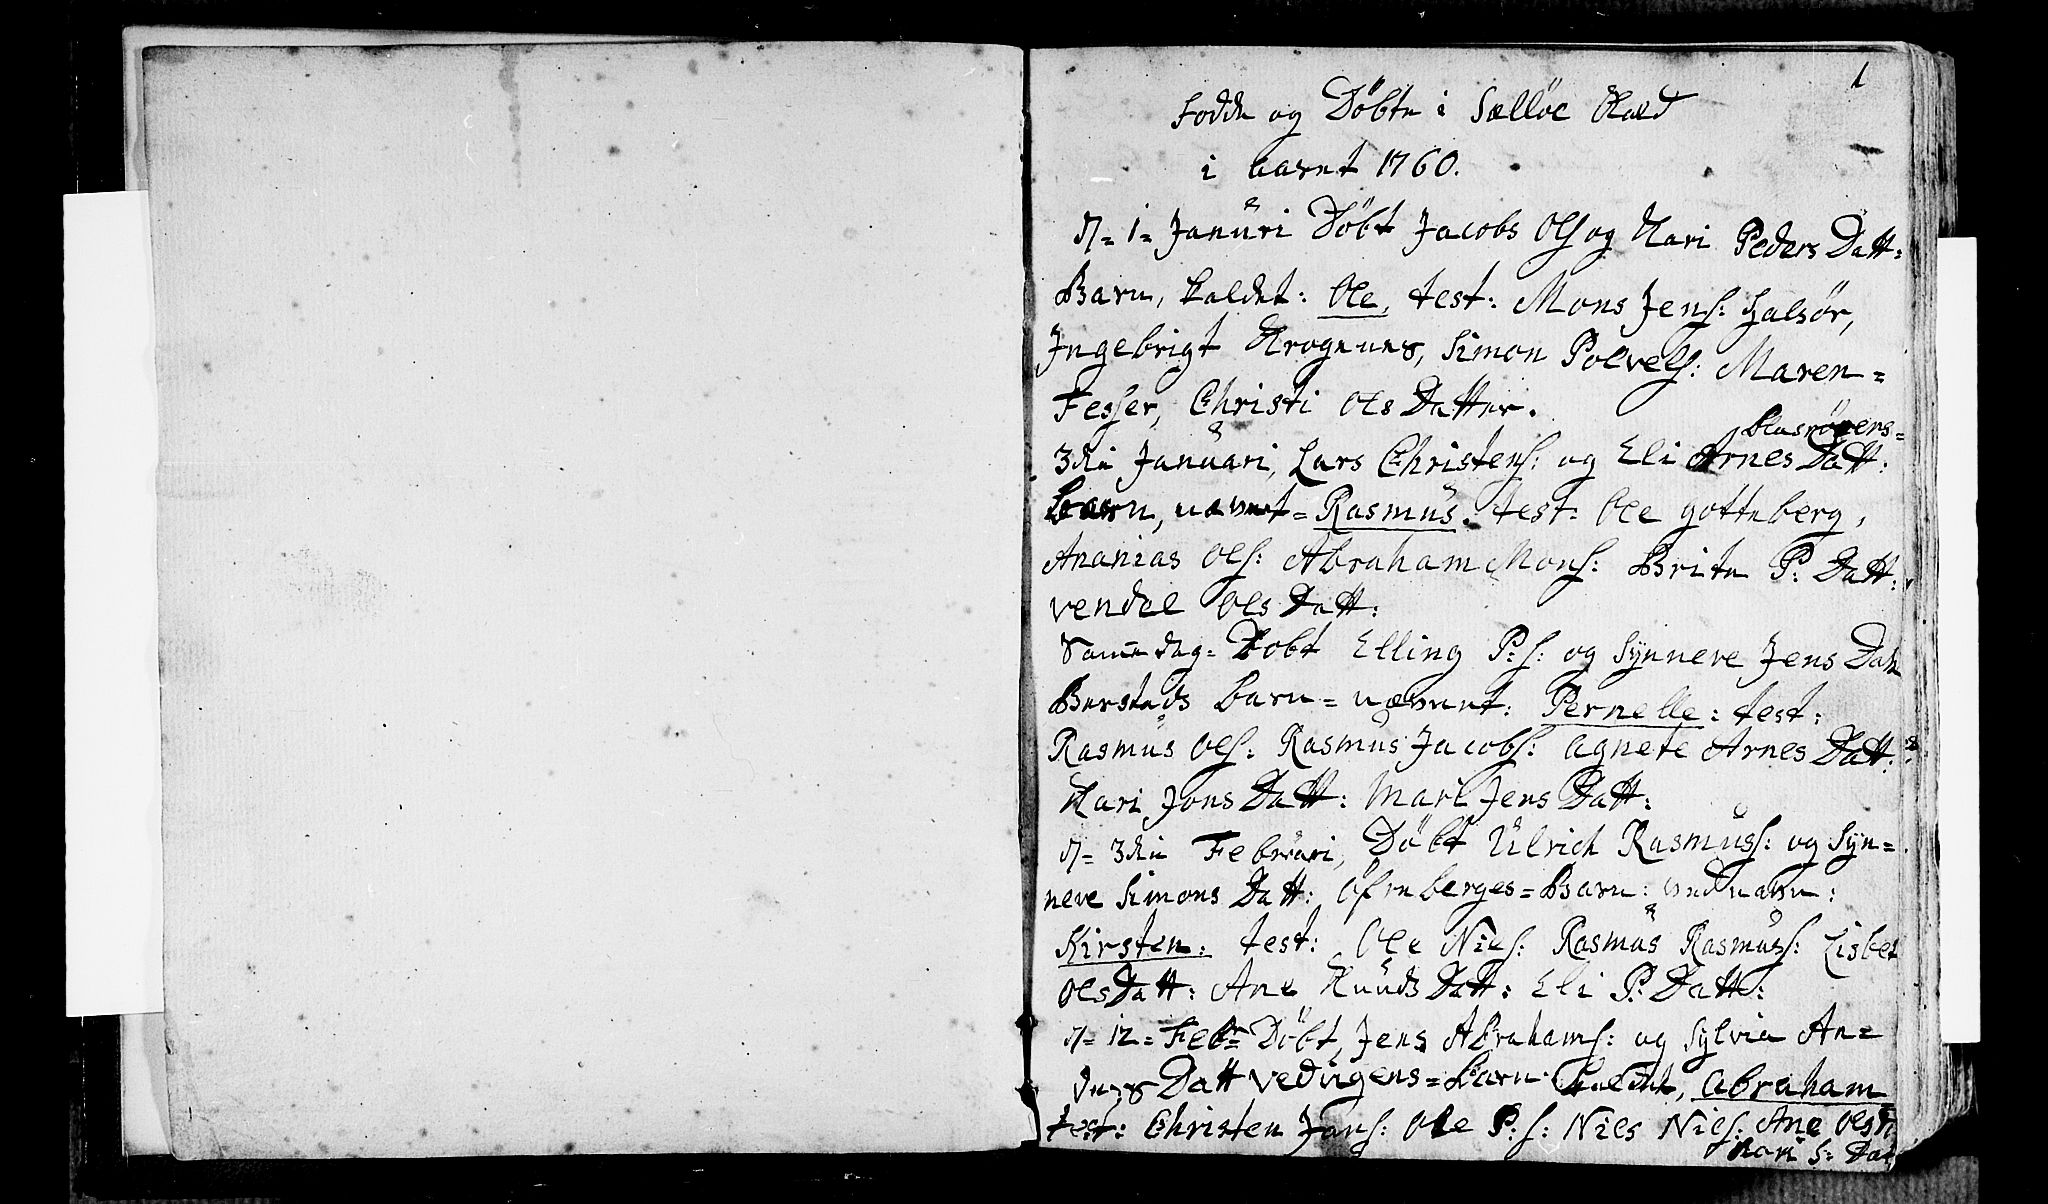 1
Fødde og Döbte i Sælløe Kald
i aaret 1760.
d. 1 = Januri Döbt Jacobs Ols og Kari Peders Datt:
Barn, kaldet: Ole, test: Mons Jens: Halsör,
Ingebrigt Simon Povels: Maren =
Fesser, Christi Ols Datter.
3die Januari, Lars Christens: og Eli Arnes Datt:
Barn, nævnt = Rasmus. test: Ole gotteberg,
Ananias Ols: Abraham Mons: Brite P: Datt:
vendel Ols Datt:
Samme dag = Döbt Elling P: s: og Synneve Jens Dat
Barn = nævnet: Pernelle: test:
Rasmus Ols: Rasmus Jacobs: Agnete Arnes Datt:
Kari Jons Datt: Mari Jens Datt:
d. 3die Februari, Döbt Ulrich Rasmuss: og Syn=
neve Simons Datt: Barn: ved navn:
Kirsten: test: Ole Niels: Rasmus Rasmuss: Lisbet
Ols Datt: Ane Knuds Datt: Eli P: Datt:
d. 12 = Febr Döbt, Jens Abrahams: og Sylvia An=
ders Datt vedvigens = Barn kaldet, Abraham
test: Christen Jans: Ole P: s: Niels Niels: Ane Ols D
Kari S: Dat